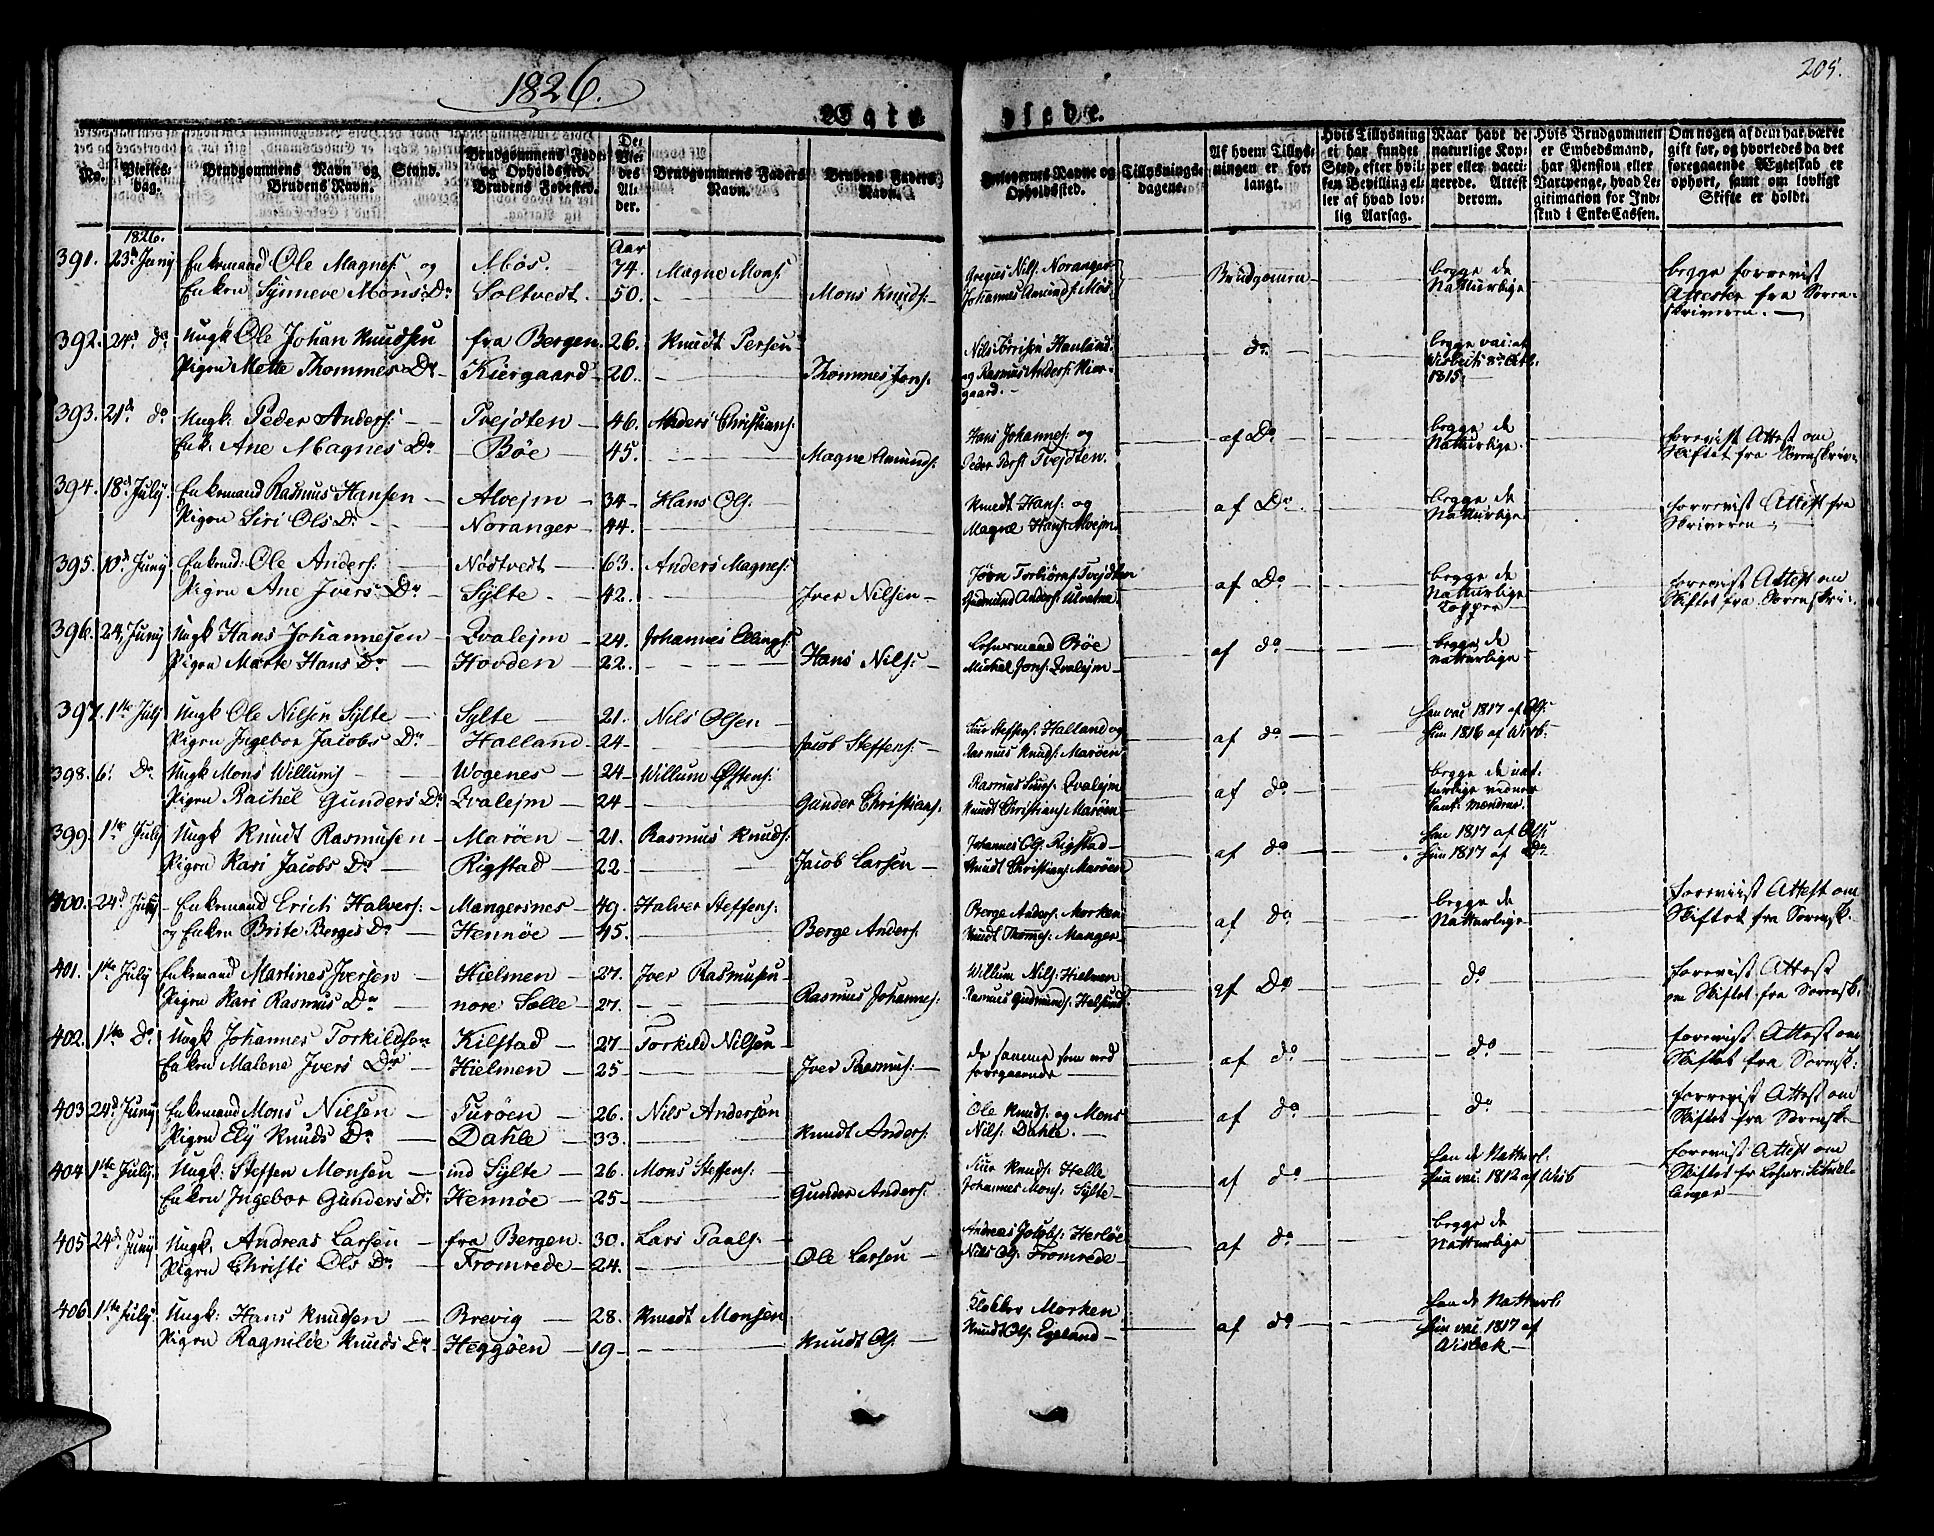 1826.
205.
Egte Viede.
No.
Vielses-
dag.
Brudgommens Navn og Stand.
Brudens Navn.
Brudgommens Føde-
og Opholdssted.
Brudens Fødested.
De
Vie-
des
Al-
der.
Brudgommens Faders
Navn.
Brudens Faders
Navn.
Forlovernes Navne og
Opholdssted.
Tillysnings-
dagene.
Af hvem Tillys-
ningen er for-
langt.
Hvis Tillysning
ei har fundet
Sted, efter hvil-
ken Bevilling el-
ler af hvad lov-
lig Aarsag.
Naar havt de
naturlige Kop-
per eller vacci-
nerede. Attest
derom.
Hvis Brudgommen
er Embedsmand,
har Pension eller
Vartpenge, hvad Le-
gitimation for Ind-
skud i Enke-Cassen.
Om nogen af dem har været
gift før, og hvorledes da det
foregaaende Ægteskab er
ophørt, samt om lovligt
Skifte er holdt.
1826. Aar
391. 23de Juny Enkemand Ole Magnes: og Møs. 74. Magne Mons: Greges Nils: Noranger Brudgomen begge de begge forreviist
Enken Synneve Mons: Dr Soltvedt. 50. Mons Knuds: Johannes Amunds: Møs Natturlige Attester fra Soren-
skriveren.
392. 24de do Ungk Ole Johan Knudsen fra Bergen 26. Knudt Persen Nils Torrisen Hauland do begge vac: af
Pigen Mette Thommes Dr Kiergaard 20. Thommes Jons: og Rasmus Anders: Kier-
gaard. 1815.
393. 21de do Ungk: Peder Anders: Tvejdten 46. Anders Christians: Hans Johannes: og af Do begge de forevist Attest om
Enk: Ane Magnes Dr Bøe 45. Magne Amunds: Peder Pers: Tvejdten. Natturlige Skiftet fra Sorenskriv:
394. 18de July Enkemand Rasmus Hansen Alvejm 34 Hans Ols: Knudt Hans: og af Do begge de forrevist Attest fra
Pigen Siri Ols Dr Noranger 44. Magne Hans: Alvejm Natturlige Skriveren
395. 10de Juny Enkemd: Ole Anders: Nødtvedt 63. Anders Magnes: Jørn Torbiørns: Tvejdten af Do begge de forevist Attest om
Pigen Ane Ivers: Dr Sylte 42. Iver Nilsen Gudmund Anders: Natturlige Skiftet fra Sorenskri:
Copper
396. 24, Juny Ungk Hans Johannesen Qvalejm 24. Johannes Ellings: Lehnsmand Bøe af do begge de
Pigen Marte Hans Dr Hovden 22. Hans Nils: Mickel Jons: Qvalejm natturlige
397. 1ste July Ungk Ole Nilsen Sylte Sylte 21. Nils Olsen Siur Steffens: Halland og af do Han vac: 1817 af Ols:
Pigen Ingebor Jacobs Dr Halland 24 Jacob Steffens: Rasmus Knuds: Marøen Hun 1816 af Wisb:
398. 6: Do. Ungk Mons Willums Wogenes 24 Willum Østens: Rasmus Siurs: Qvalejm af do begge de nat:
Pigen Rachel Gunders Dr Qvalejm 24 Gunder Christians: Knudt Christians: Marøen turlige vidner
bant: Mændene.
399. 1ste July Ungk Knudt Rasmusen Marøen 21. Rasmus Knuds: Johannes Ols: Rigstad af do Han 1817 af Ols:
Pigen Kari Jacobs Dr Rigstad 22 Jacob Larsen Knudt Christians: Marøen Hun 1817 af Do
400. 24de July Enkemand Erich Halvers: Mangersnes 49. Halver Steffens: Berge Anders: Morken af do begge de foreviist Attest om
og Enken Brite Berges Dr Hennøe 45. Berge Anders: Knudt Thomes: Manger Natturlige Skiftet fra Sorensk:
401. 1ste July Enkemand Martines Iversen Hielmen 27. Iver Rasmusen Willum Nils: Hielmen af Do do forevist Attest
Pigen Kari Rasmus Dr nore Sølle 27. Rasmus Johannes: Rasmus Gudmunds: om Skiftet fra Sorensk:
402. 1ste Do Ungk Johannes Torkildsen Kilstad 27 Torkild Nilsen de samme som ved af do do forevist Attest om
Enken Malene Ivers Dr Hielmen 25 Iver Rasmus: foregaaende Skiftet fra Sorensk:
403 24de Juny Enkemand Mons Nilsen Turøen 26. Nils Andersen Ole Knuds: og Mons af do do forrevist Attest om
Pigen Ely Knuds Dr Dahle 33. Knudt Anders: Nils: Dahle. Skiftet fra Sorensk
404 1ste July. Ungk: Steffen Monsen ind Sylte 26. Mons Steffens: Siur Knuds: Helle af do Han de Natturl: forevist Attest om
Enken Ingebor Gunders Dr Hennøe 25 Gunder Anders: Johannes Mons: Sylte Hun vac: 1812 af Wisb Skiftet fr Lehns:
405 24de Juny Ungk. Andreas Larsen fra Bergen 30. Lars Paals: Andreas Josephs: Herløe af do begge de
Pigen Christi Ols Dr Fromrede 24. Ole Larsen Nils Ols: Fromrede Natturlige
406. 1ste July. Ungk: Hans Knudsen Brevig 28. Knudt Monsen Klokker Morken af do Han de Natturl:
Pigen Ragnilde Knuds Dr Heggøen 19 Knudt Ols: Knudt Ols: Egeland Hun vac: 1817 af
Wisbek